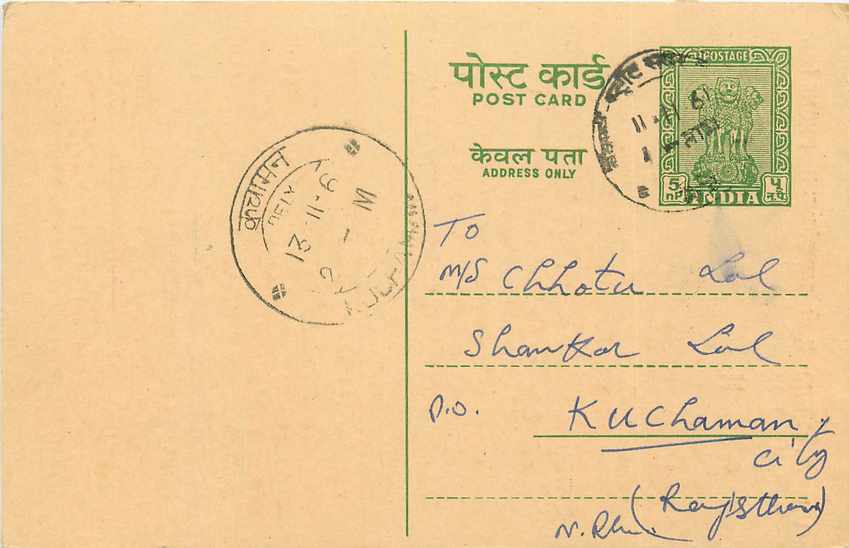 पोस्ट कार्ड
POST CARD
केवल पता
ADDRESS ONLY
POSTAGE
5 nP
INDIA
५ न.पै.
11·11 61
कुचामन
DELY
13·11·6
2 - M
To
M/S Chhotu Lal
Shankar Lal
P.O. KUChaman
City
(Rajisthan)